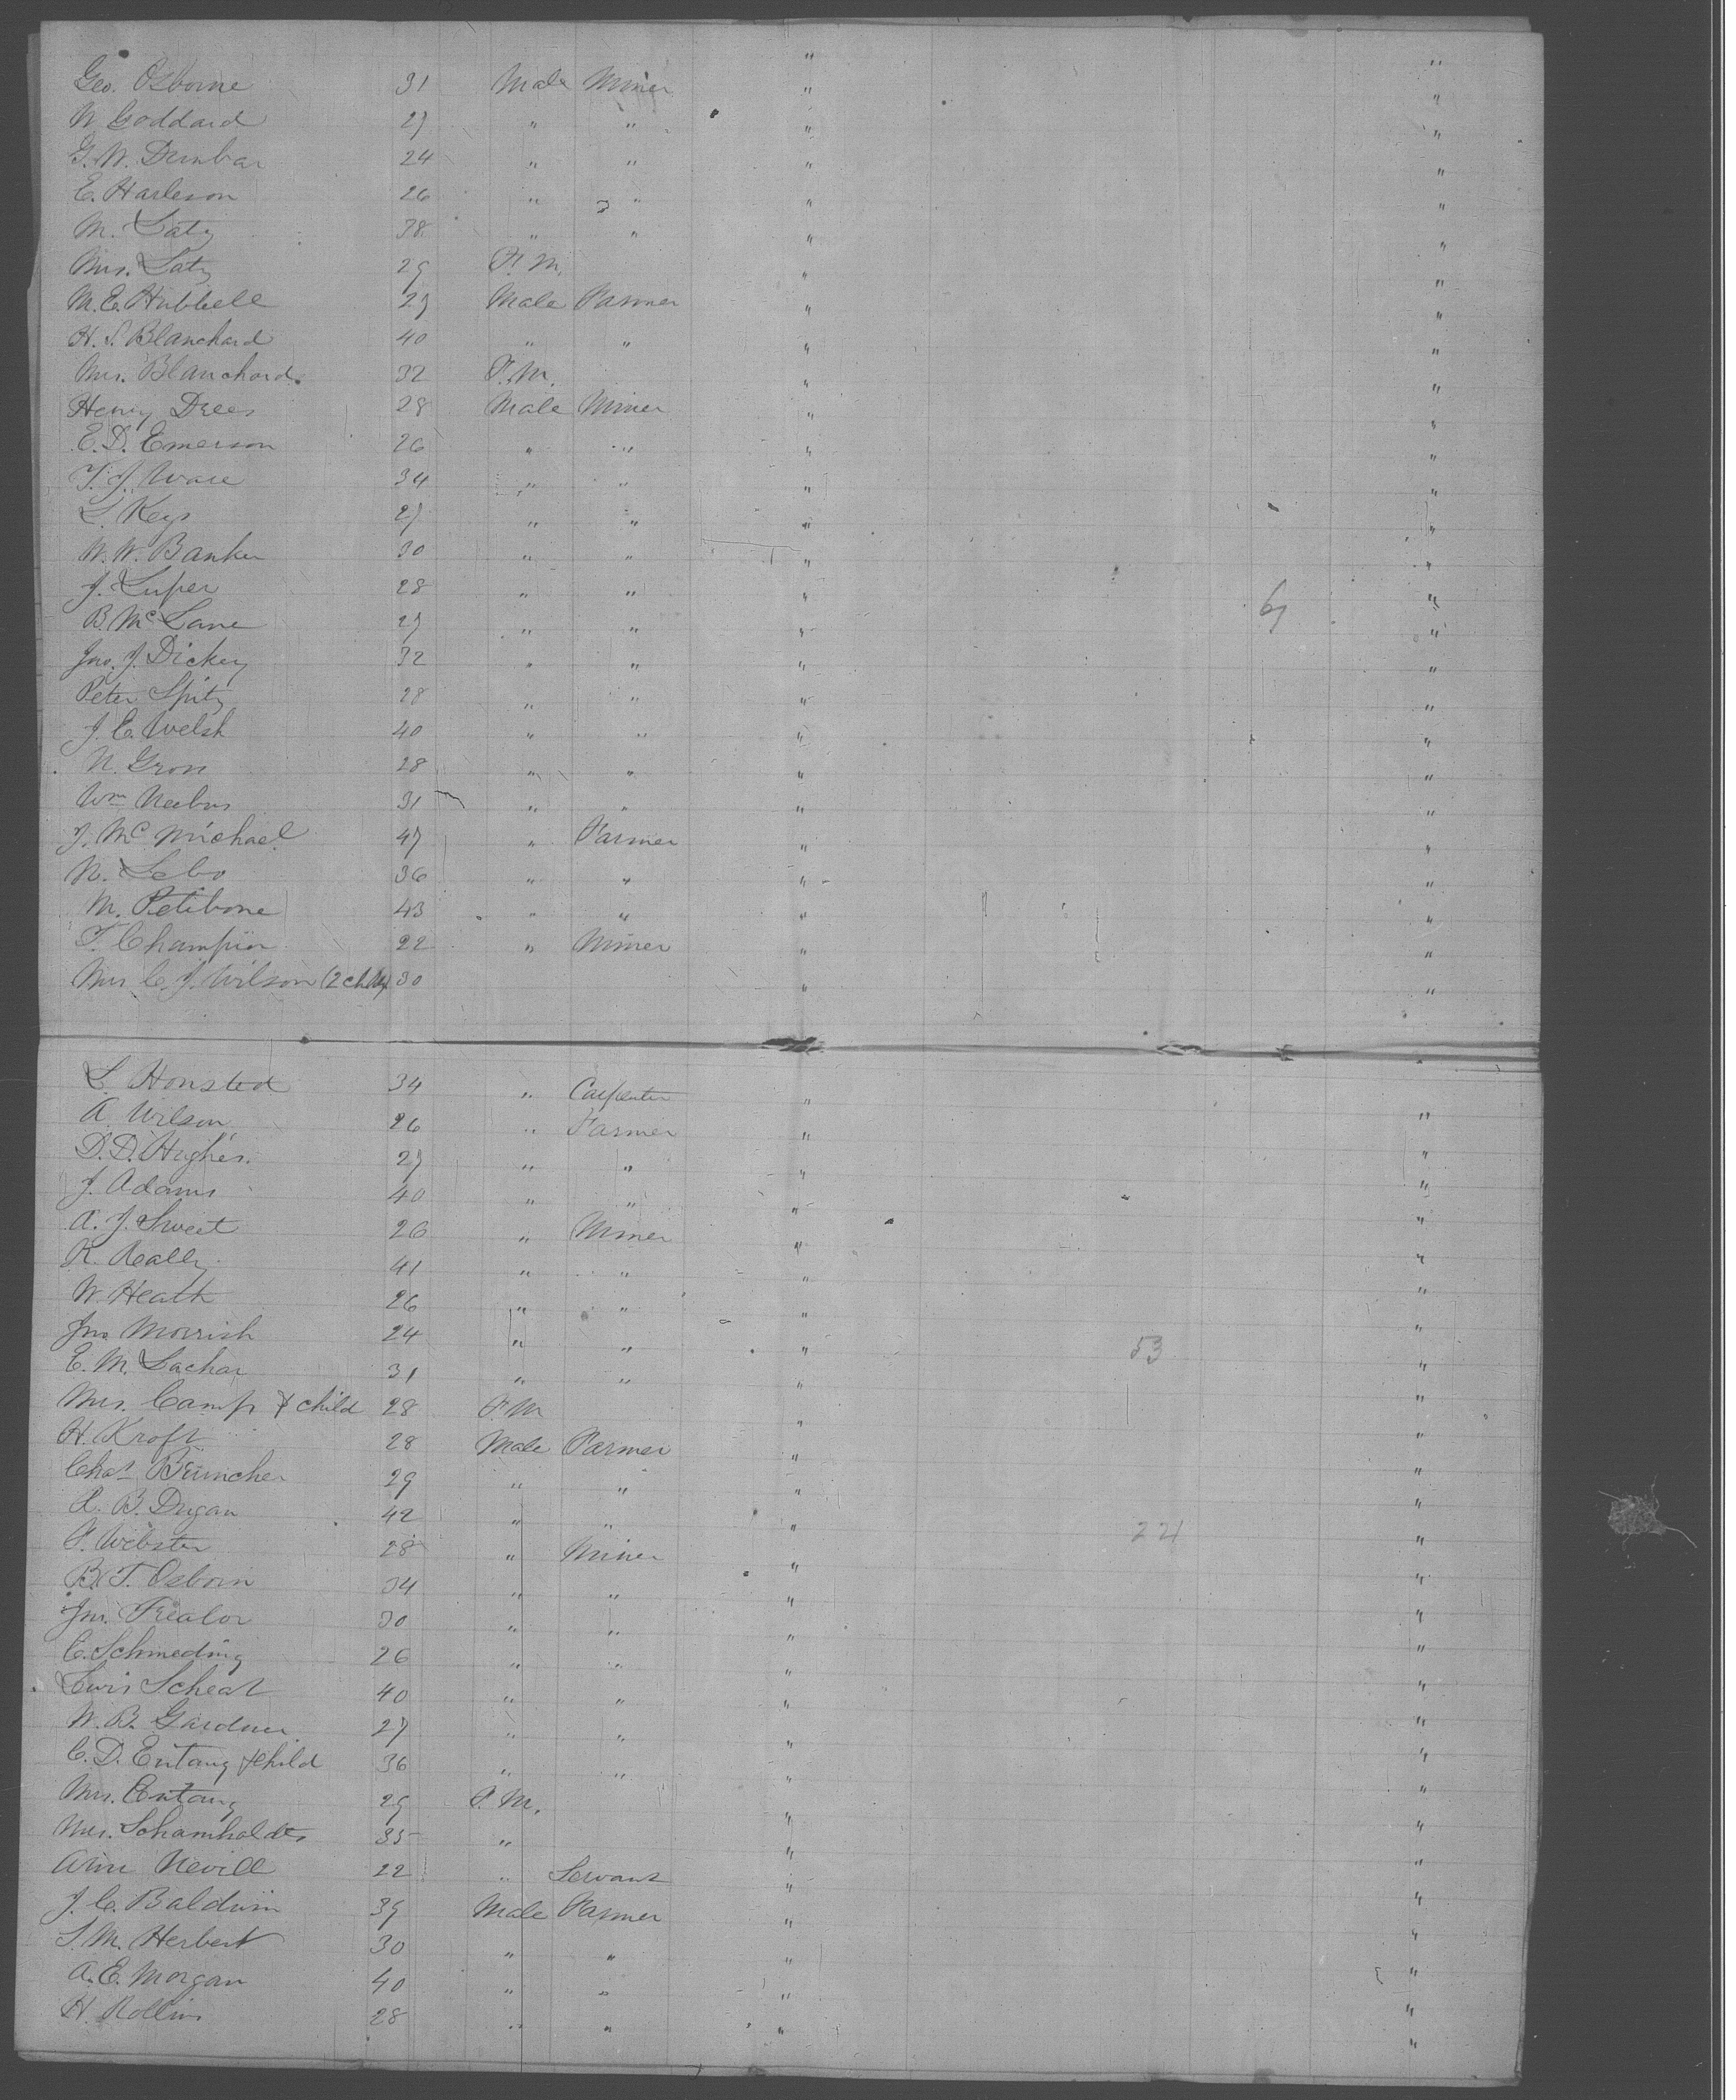 " "
Geo. Osborne 31 Male Miner " "
W Goddard 27 " " " "
G. W. Dunbar 24 " " " "
E. Harleson 26 " " " "
M. Latz 38 " " " "
Mrs. Latz 29 F. M. " "
M. E. Hubbell 27 Male Farmer " "
H. S. Blanchard 40 " " " "
Mrs. Blanchard. 32 F. M. " "
Henry Drees 28 Male Miner " "
E. D. Emerson 26 " " " "
T. J. Ware 34 " " " "
L. Keys 27 " " " "
W. W. Banker 30 " " " "
J. Luper 28 " " " "
B. McLane 27 " " " "
Jno. J. Dickey 32 " " " "
Peter Spitz 28 " " " "
J. E. Welsh 40 " " " "
N. Gross 28 " " " "
Wm 31 " " " "
J. McMichael 47 " Farmer " "
N. Lebo 36 " " " "
M. Petibone 43 " " " "
T. Champion 22 " Miner " "
Mrs C. J. Wilson (2 chld) 30 " "
L. Honsted 34 " Carpenter " "
A. Wilson 26 " Farmer " "
D. D. Hughes. 27 " " " "
J. Adams 40 " " " "
A. J. Sweet 26 " Miner " "
R. Really 41 " " " "
W. Heath 26 " " " "
Jno Morrish 24 " " " 53 "
E. M. Lachar 31 " " " "
Mrs. Camp & child 28 F. M " "
H. Kroft 28 Male Farmer " "
Chas Buncher 29 " " " "
R. B. Dugan 42 " " " "
Webster 28 " Miner " 221 "
B. T. Osborn 34 " " " "
Jno. Trealor 30 " " " "
C. Schmeding 26 " " " "
Lewis Scheat 40 " " " "
W. B. Gardner 27 " " " "
C. D. Entang & child 36 " " " "
Mrs. Entang 29 F. M. " "
Mrs. Schamholdts 35 " " "
Ann Nevill 22 " Servant " "
J. C. Baldwin 39 Male Farmer " "
S. M. Herbert 30 " " " "
A. E. Morgan 40 " " " "
H. Rollins 28 " " " "